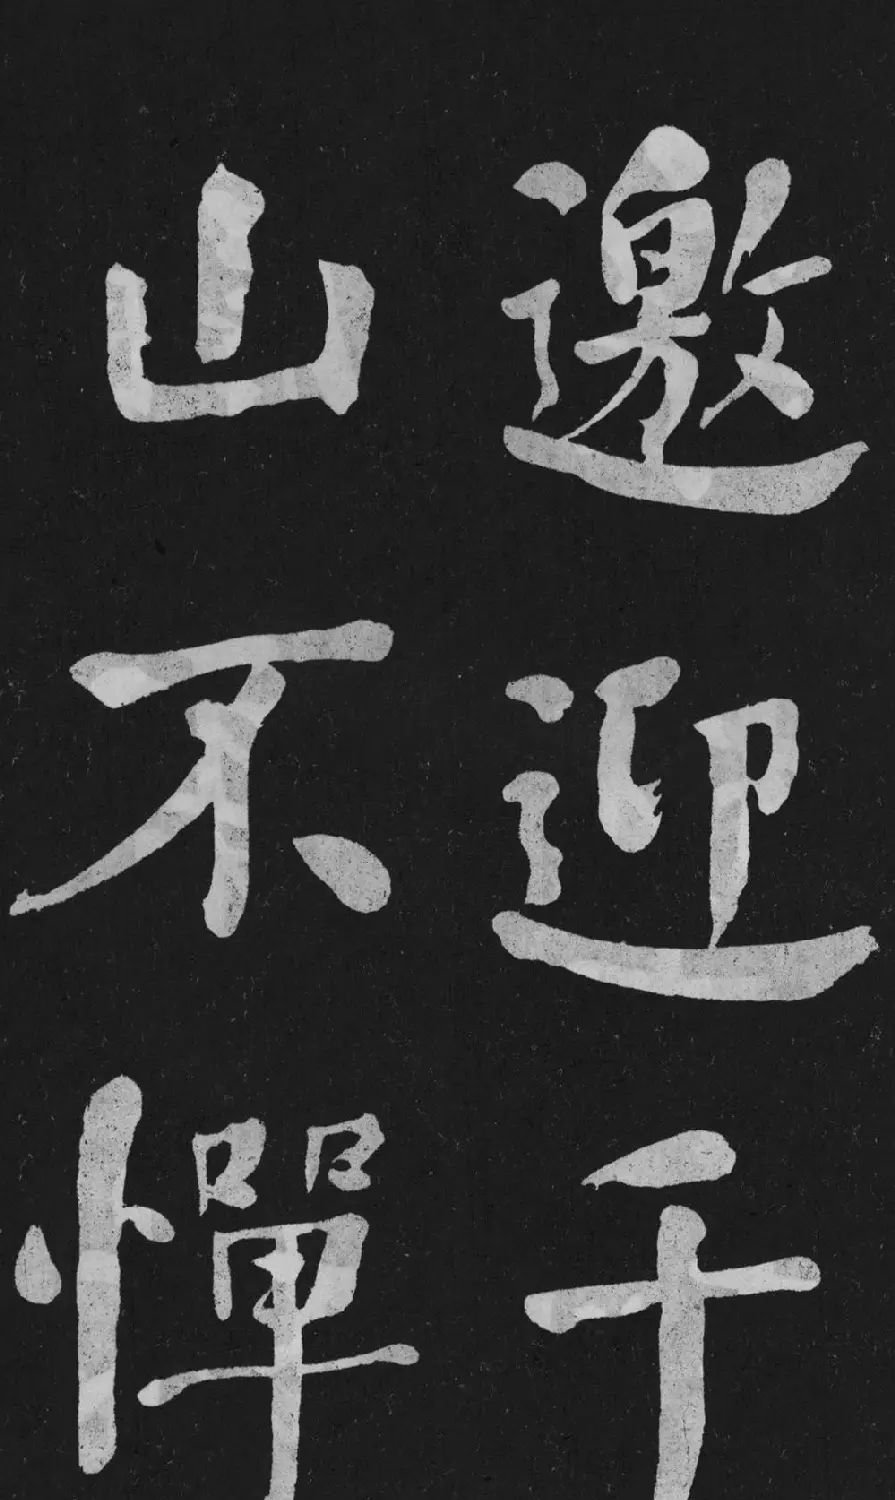 邀迎千
山不憚